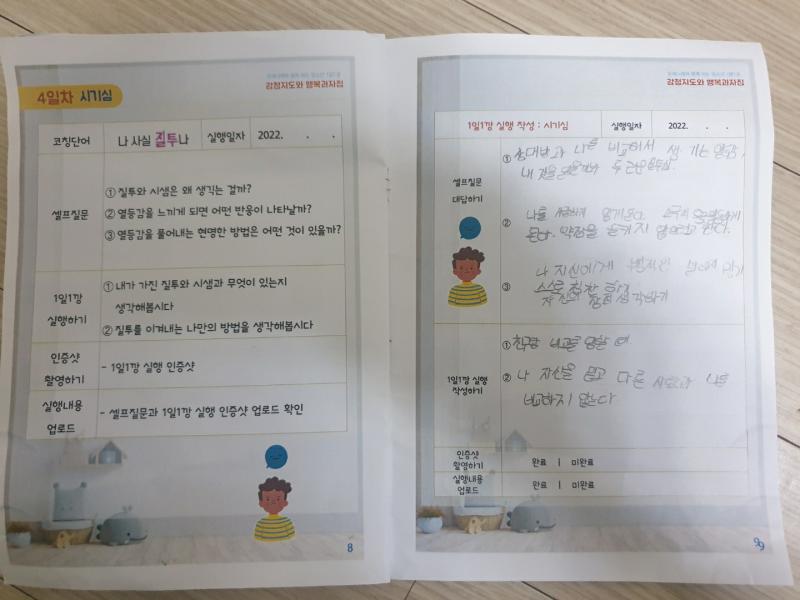 감정지도와 행복과자집
4일차 시기심
코칭단어
나 사실 질투나
실행일자
2022. . .
셀프질문
① 질투와 시샘은 왜 생기는 걸까?
② 열등감을 느끼게 되면 어떤 반응이 나타날까?
③ 열등감을 풀어내는 현명한 방법은 어떤 것이 있을까?
1일1깡
실행하기
① 내가 가진 질투와 시샘과 무엇이 있는지
생각해봅시다
② 질투를 이겨내는 나만의 방법을 생각해봅시다
인증샷
촬영하기
- 1일1깡 실행 인증샷
실행내용
업로드
- 셀프질문과 1일1깡 실행 인증샷 업로드 확인
8
감정지도와 행복과자집
1일1깡 실행 작성 : 시기심
실행일자
2022. . .
셀프질문
대답하기
① 상대방과 나를 비교해서 생기는
내 것을
② 나를
약점을 들키지 않으려고 한다.
③ 나 자신에게
스스로 칭찬 하기
자신의 장점 생각하기
1일1깡 실행
작성하기
① 친구랑 비교를 당할 때.
② 나 자신을 믿고 다른 사람과 나를
비교하지 않는다.
인증샷
촬영하기
완료 | 미완료
실행내용
업로드
완료 | 미완료
9